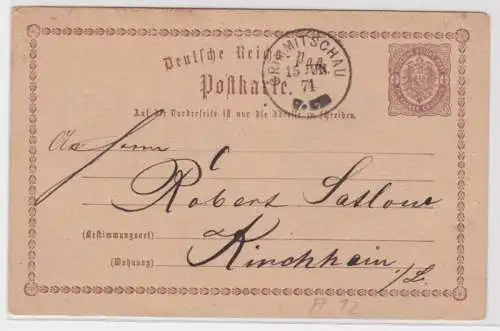 Deutsche Reichs
Postkarte.
CRIMMITSCHAU
15 JUN
71
Auf der Vorderseite ist nur die Adresse zu schreiben.
An Herrn
Robert
(Bestimmungsort)
Kirchhain
(Wohnung)
i/L.
P 12